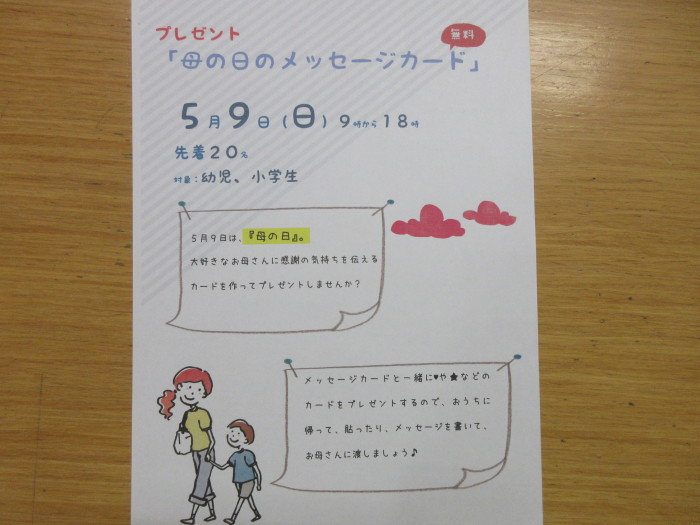 プレゼント
無料
「母の日のメッセージカード」
5月9日(日)9時から18時
先着20名
対象:幼児、小学生
5月9日は、『母の日』。
大好きなお母さんに感謝の気持ちを伝える
カードを作ってプレゼントしませんか?
メッセージカードと一緒に♥や★などの
カードをプレゼントするので、おうちに
帰って、貼ったり、メッセージを書いて、
お母さんに渡しましょう♪